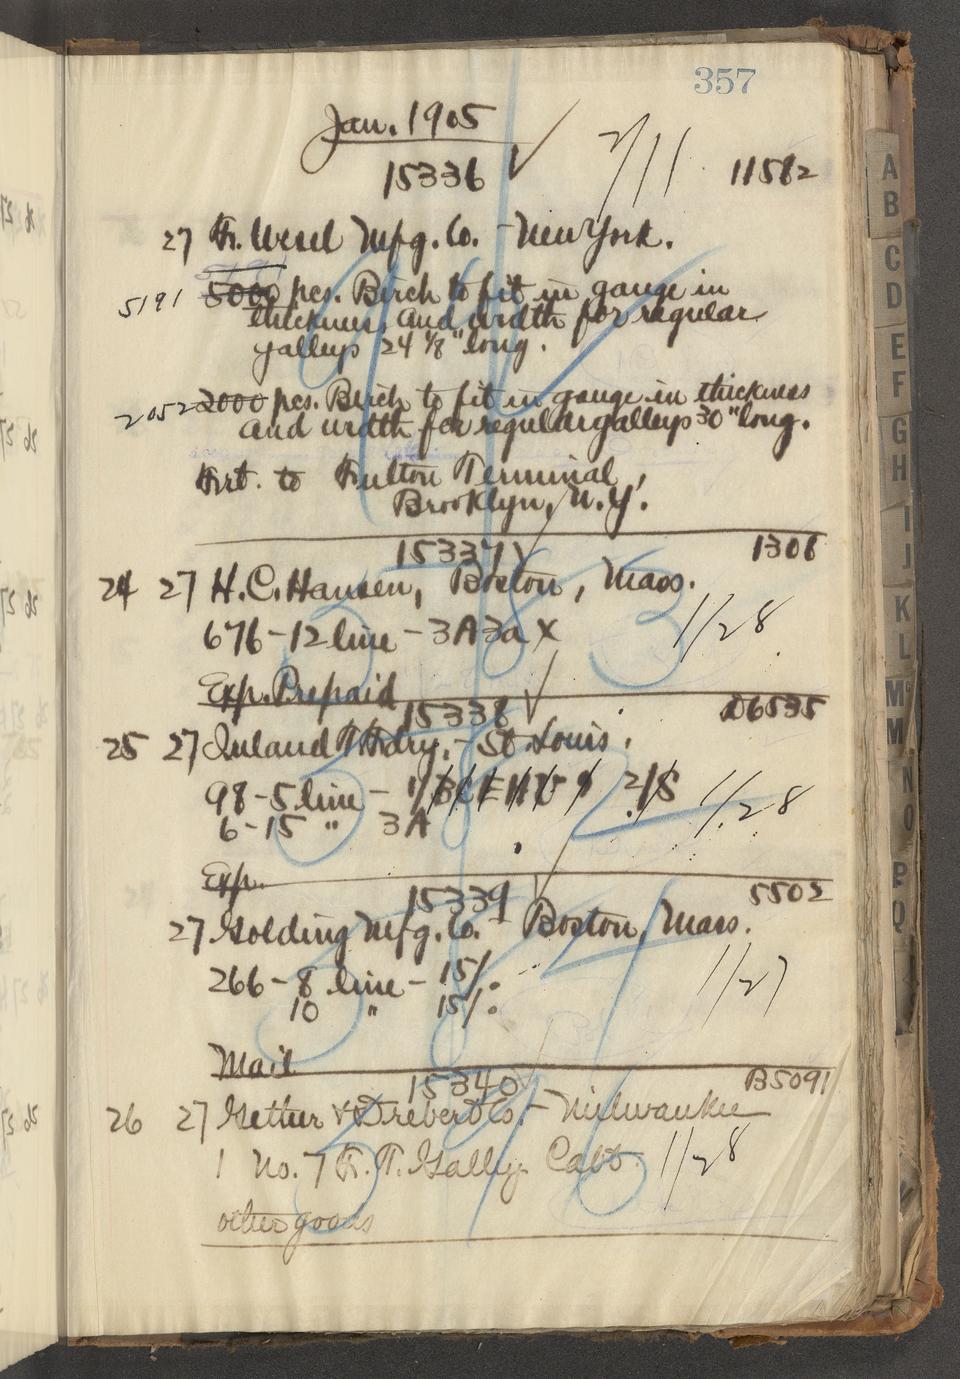 357
Jan. 1905
15336 2/11 11582
27 F. Wesel Mfg. Co. - New York.
5191 5000 pcs. Birch to fit in gauge in
thickness and width for regular
galleys 24 1/8" long.
2052 2000 pcs. Birch to fit in gauge in thickness
and width for regular galleys 30" long.
Frt. to Fulton Terminal,
Brooklyn, N.Y.
15337 1306
24 27 H. C. Hansen, Boston, Mass.
676 - 12 line - 3A 3a X 1/28
Exp. Prepaid
15338 D6535
25 27 Inland T. Fdry. - St. Louis.
98 - 5 line - 2/S 1/28
6 - 15 " 3A
Exp.
15339 5502
27 Golding Mfg. Co. - Boston, Mass.
266 - 8 line - 15/. 1/27
10 " 15/.
Mail
15340 B5091
26 27 Gether & Drebert Co. - Milwaukee
1 No. 7 F. T. Gally. Cab. 1/28
other goods
A
B
C
D
E
F
G
H
I
J
K
L
Mc
M
N
O
P
Q